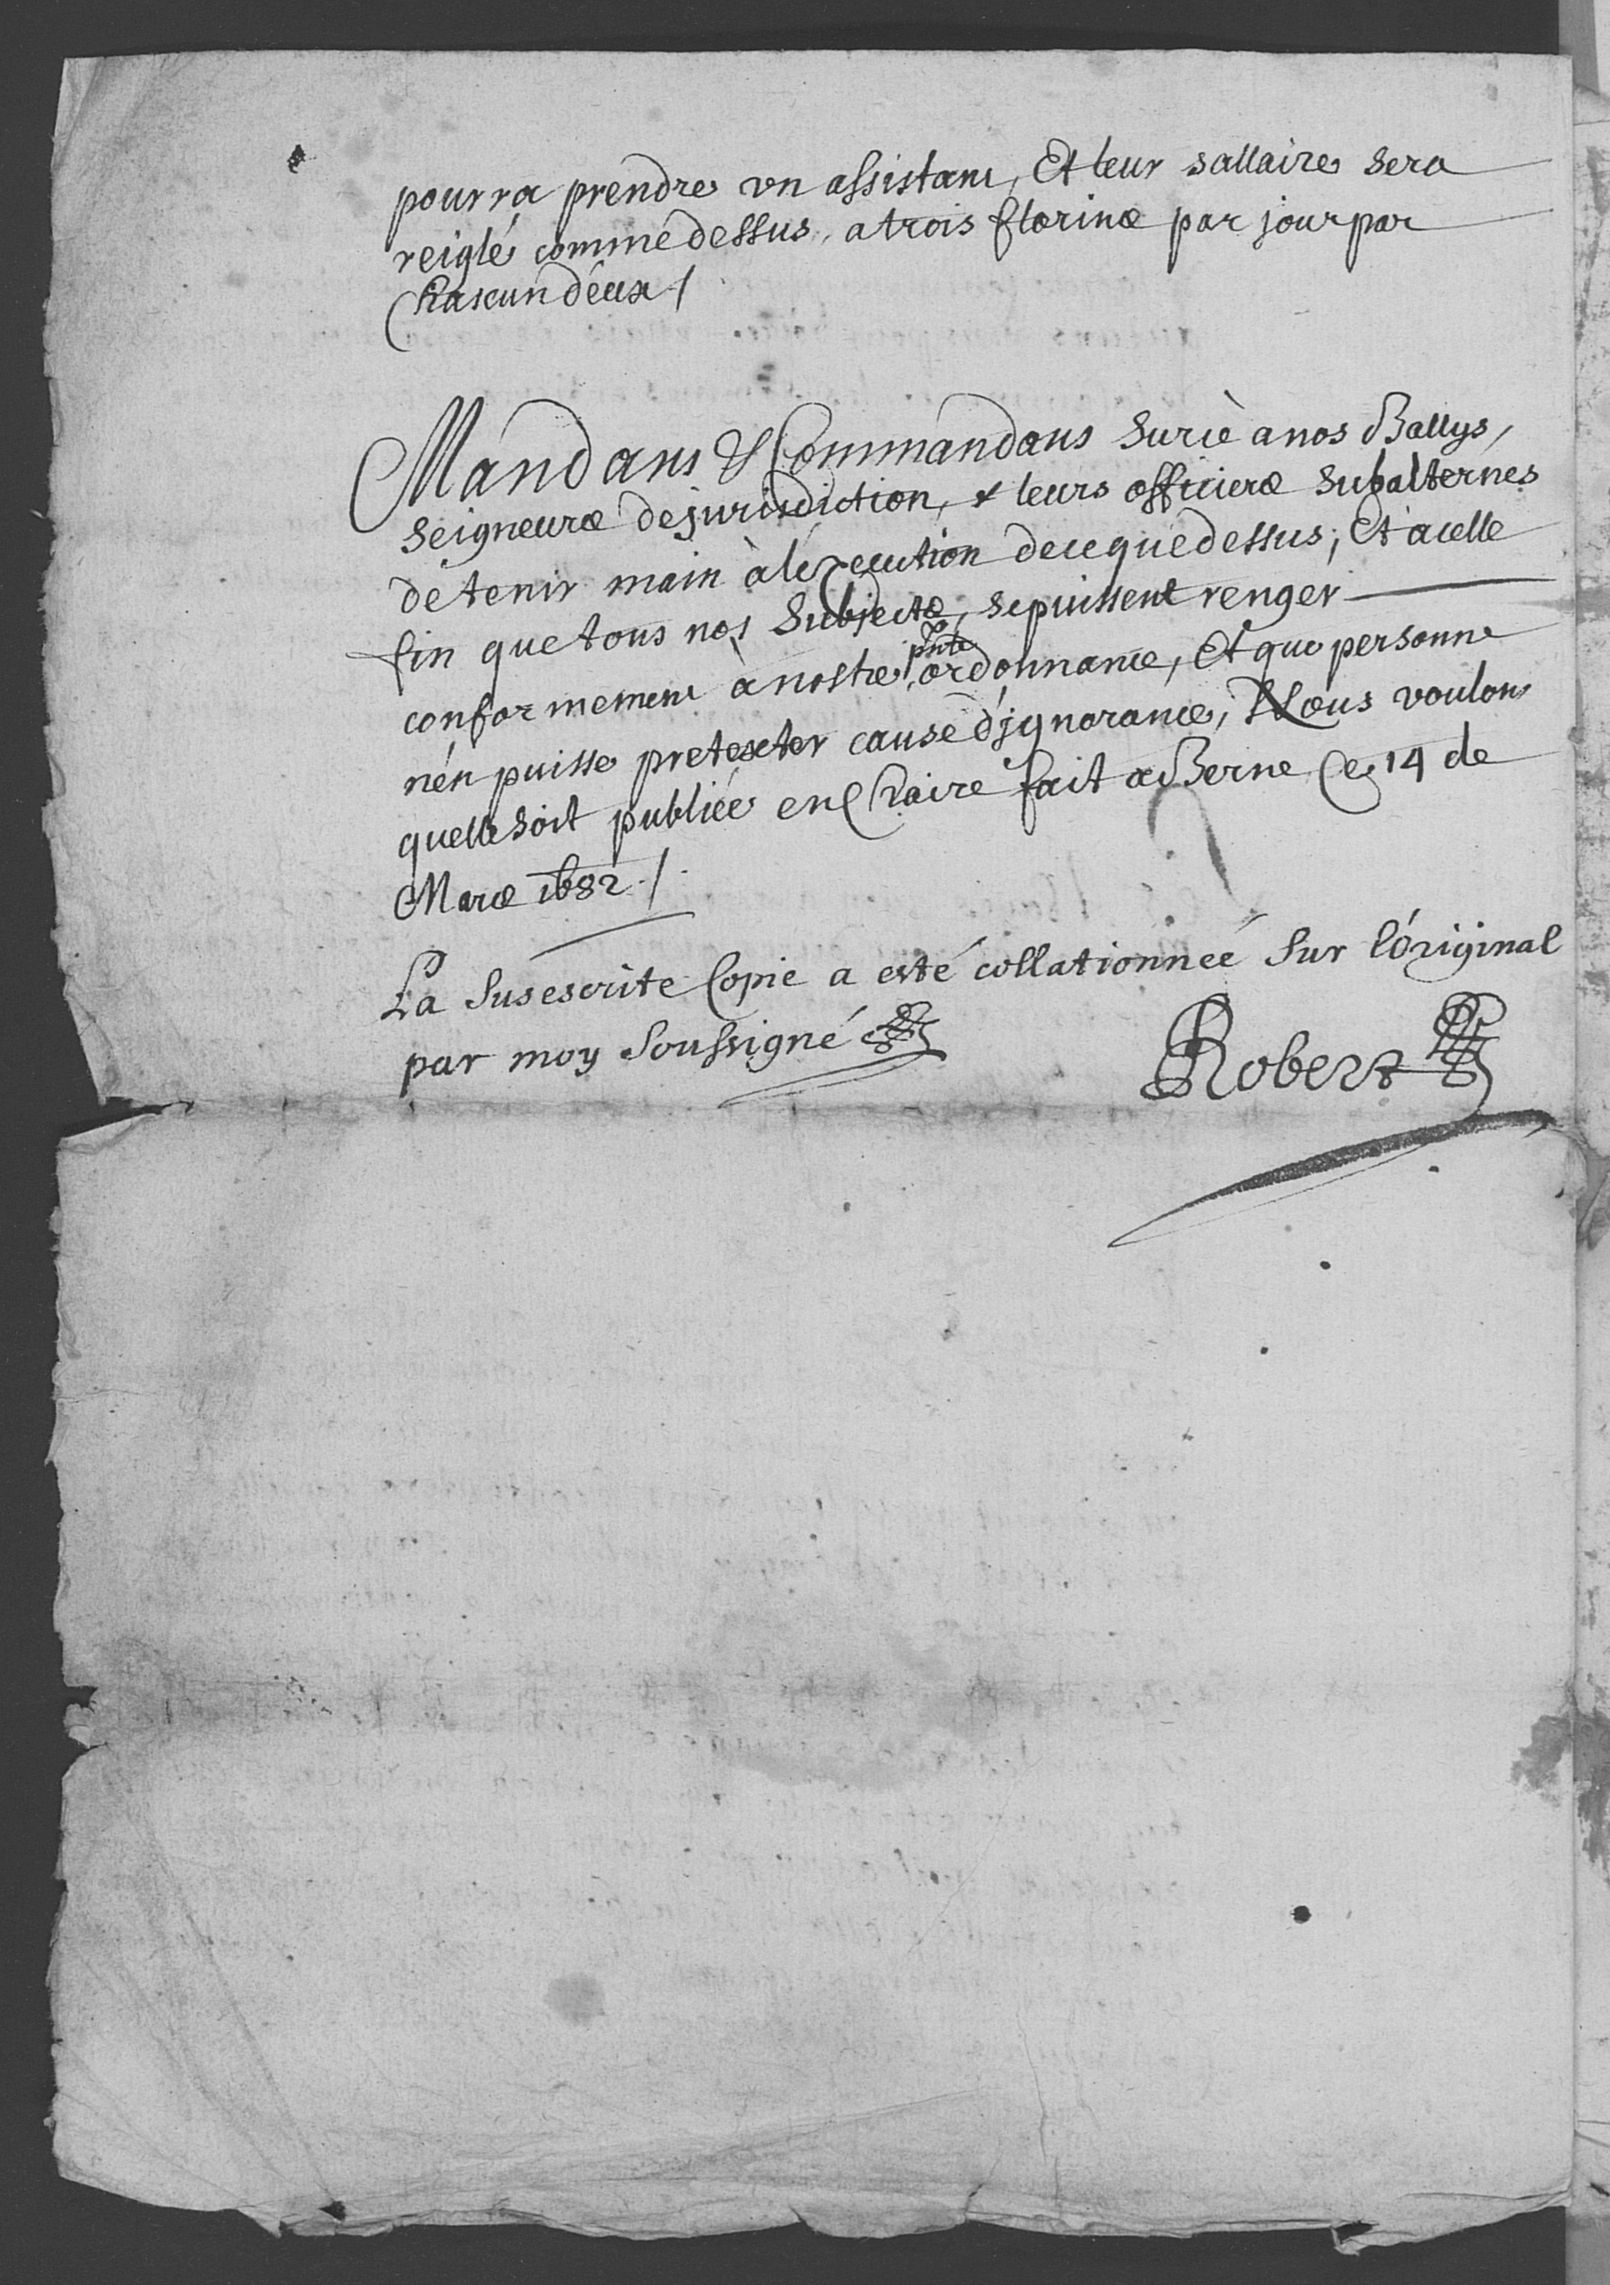 pourra prendre un assistant, Et leur sallaire sera
reiglé comme dessus, a trois florins par jour par
Chascun d'eux /
Mandans & Commandons surce a nos Ballys,
Seigneurs de jurisdiction, & leurs officiers subalternes
de tenir main à l'execution de ce que dessus; Et a celle
fin que tous nos Subjects, se puissent renger
conformement à nostre pnte ordonnance, Et que personne
n'en puisse pretexter cause d'jgnorance, Nous voulons
quelle soit publiée en Chaire fait a Berne Ce 14 de
Mars 1682 /.
La Susescrite Copie a esté collationneé Sur l'original
par moy Soussigné
Robert